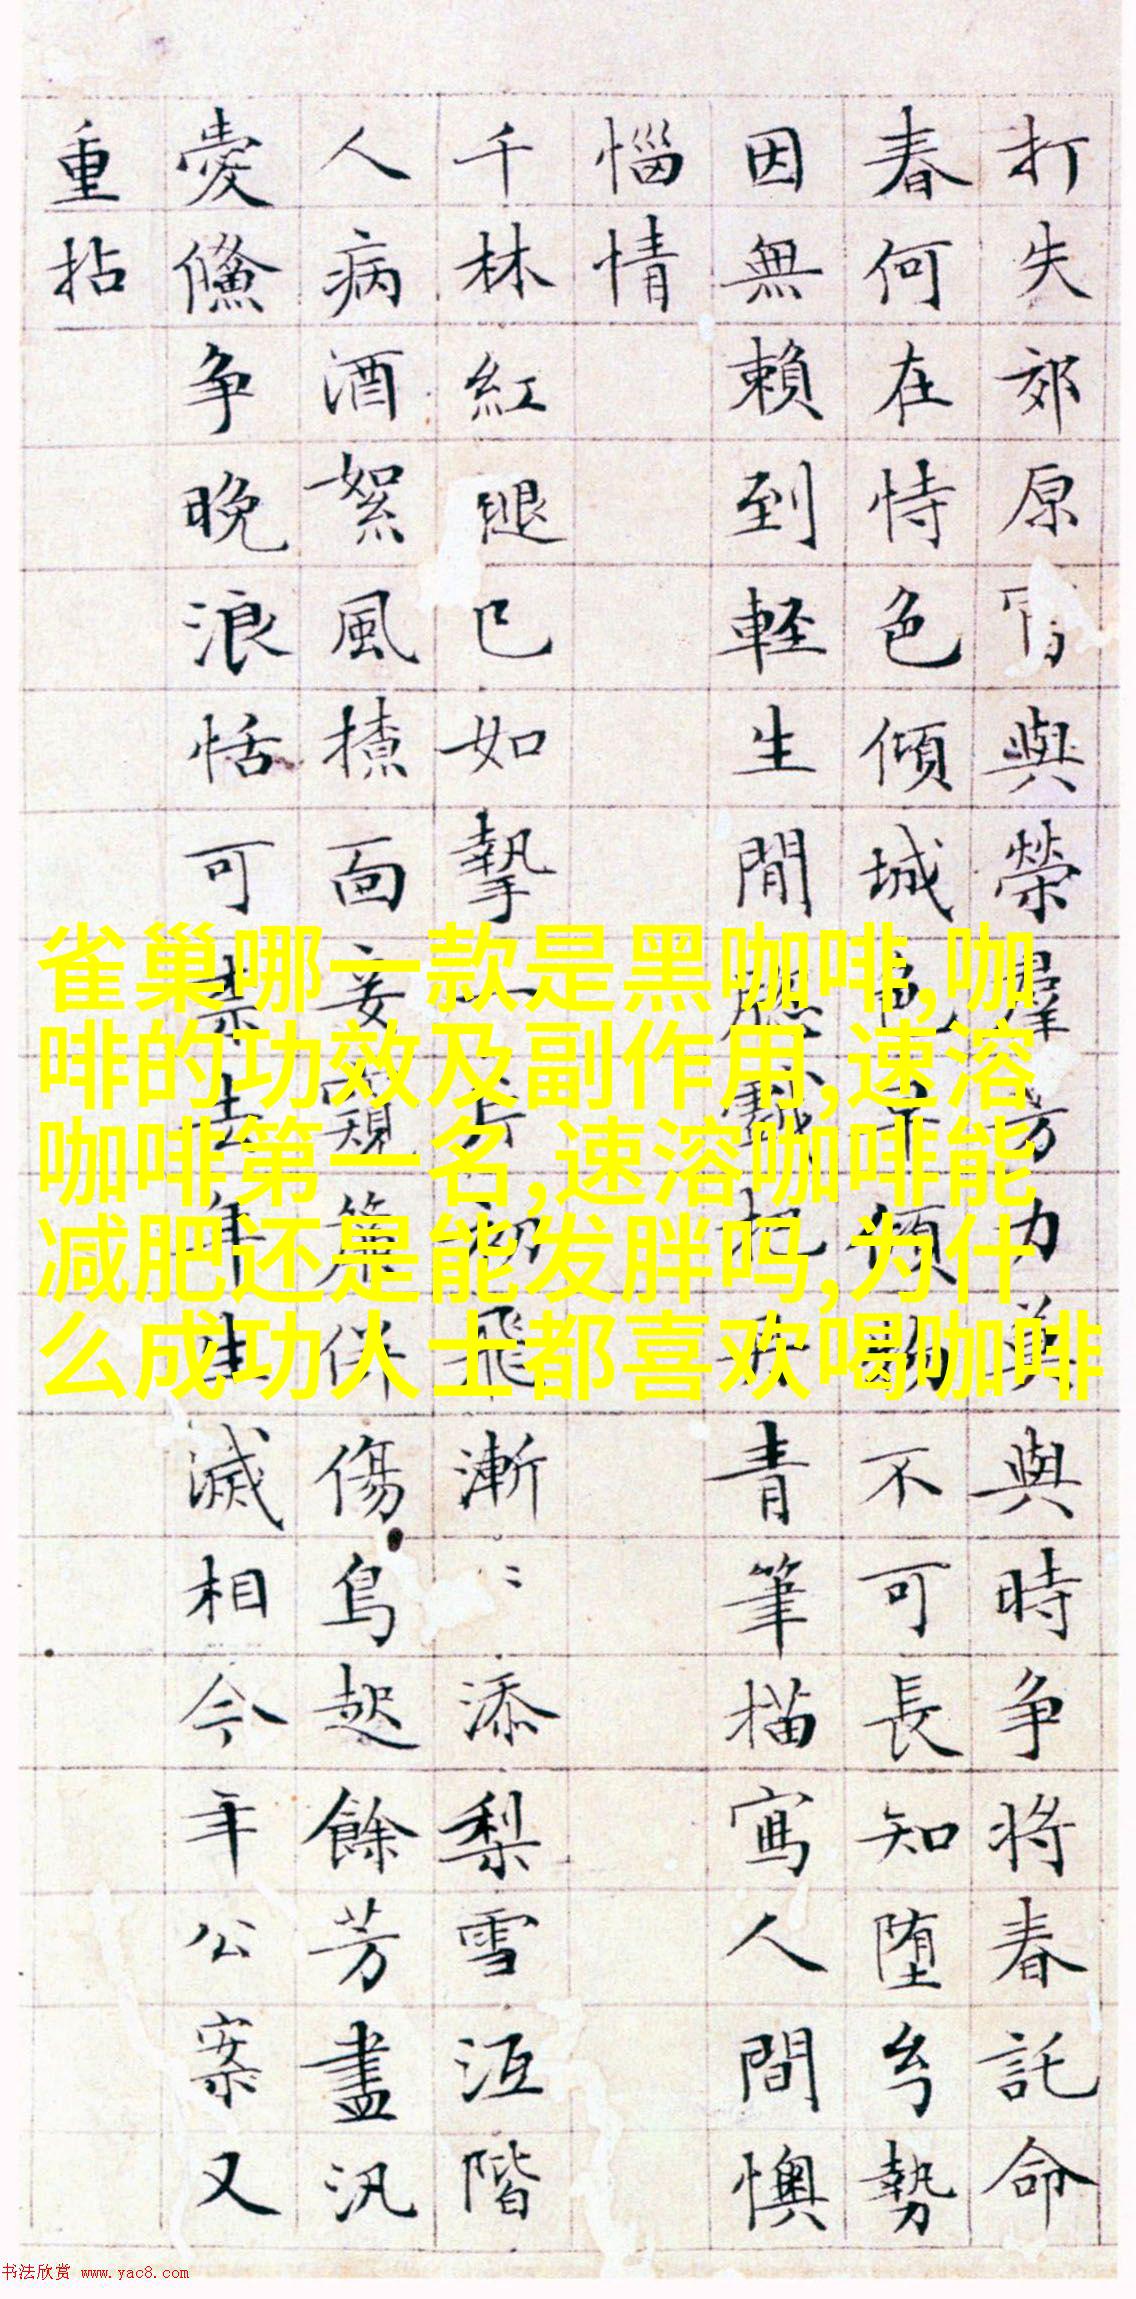 打失郊原
與榮
力
與時争将春託命
春何在恃色傾城
不可長知堕
勢
因無賴到軽生閒
青筆描寫人間懊
惱情
千林紅腿已如摯
飛漸〻添梨雪
階
人病酒絮風
面妾
傷鳥起餘芳盡汎
愛
争晚浪恬可
滅相今年公案又
重拈
雀巢哪一款是黑咖啡,咖
啡的功效及副作用,速溶
咖啡第一名,速溶咖啡能
减肥还是能发胖吗,为什
么成功人士都喜欢喝咖啡
书法欣赏 www.yac8.com